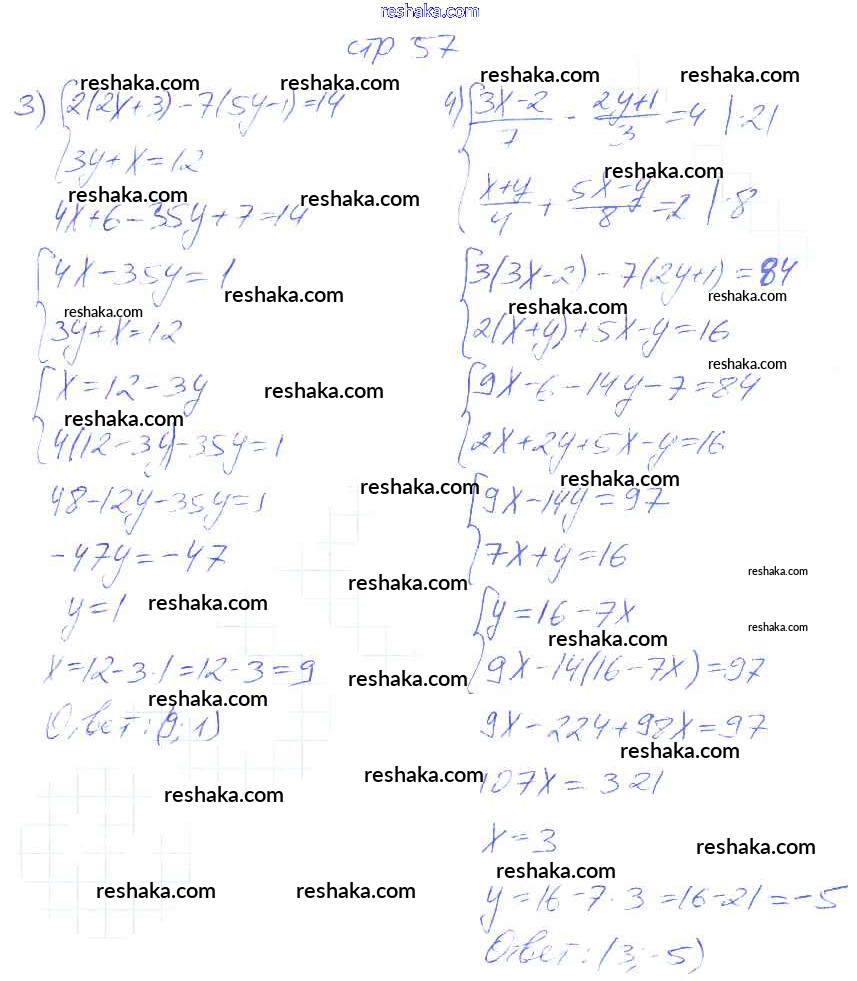 reshaka.com
стр 57
3) { 2(2x+3) - 7(5y-1) = 14
3y + x = 12
4x + 6 - 35y + 7 = 14
{ 4x - 35y = 1
3y + x = 12
{ x = 12 - 3y
4(12 - 3y) - 35y = 1
48 - 12y - 35y = 1
-47y = -47
y = 1
x = 12 - 3·1 = 12 - 3 = 9
Ответ: (9; 1)
4) { (3x-2)/7 - (2y+1)/3 = 4 |·21
(x+y)/4 + (5x-y)/8 = 2 |·8
{ 3(3x-2) - 7(2y+1) = 84
2(x+y) + 5x - y = 16
{ 9x - 6 - 14y - 7 = 84
2x + 2y + 5x - y = 16
{ 9x - 14y = 97
7x + y = 16
{ y = 16 - 7x
9x - 14(16 - 7x) = 97
9x - 224 + 98x = 97
107x = 321
x = 3
y = 16 - 7·3 = 16 - 21 = -5
Ответ: (3; -5)
reshaka.com reshaka.com reshaka.com reshaka.com
reshaka.com
reshaka.com reshaka.com
reshaka.com reshaka.com
reshaka.com reshaka.com
reshaka.com reshaka.com
reshaka.com
reshaka.com reshaka.com
reshaka.com reshaka.com
reshaka.com reshaka.com
reshaka.com reshaka.com
reshaka.com reshaka.com
reshaka.com reshaka.com
reshaka.com reshaka.com
reshaka.com
reshaka.com reshaka.com